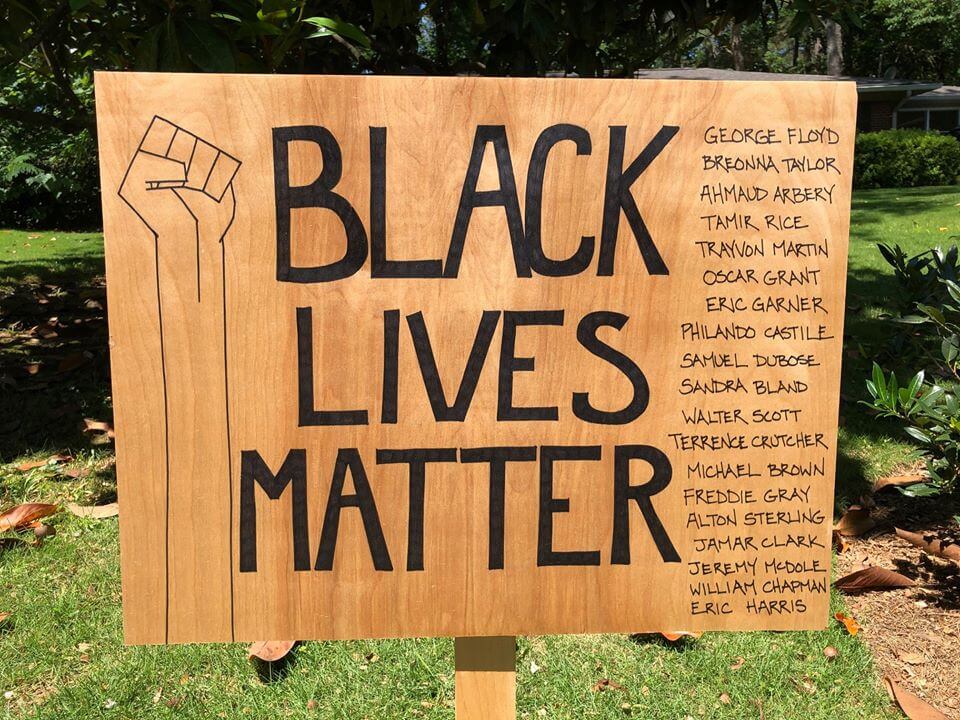 BLACK
LIVES
MATTER
GEORGE FLOYD
BREONNA TAYLOR
AHMAUD ARBERY
TAMIR RICE
TRAYVON MARTIN
OSCAR GRANT
ERIC GARNER
PHILANDO CASTILE
SAMUEL DUBOSE
SANDRA BLAND
WALTER SCOTT
TERRENCE CRUTCHER
MICHAEL BROWN
FREDDIE GRAY
ALTON STERLING
JAMAR CLARK
JEREMY McDOLE
WILLIAM CHAPMAN
ERIC HARRIS